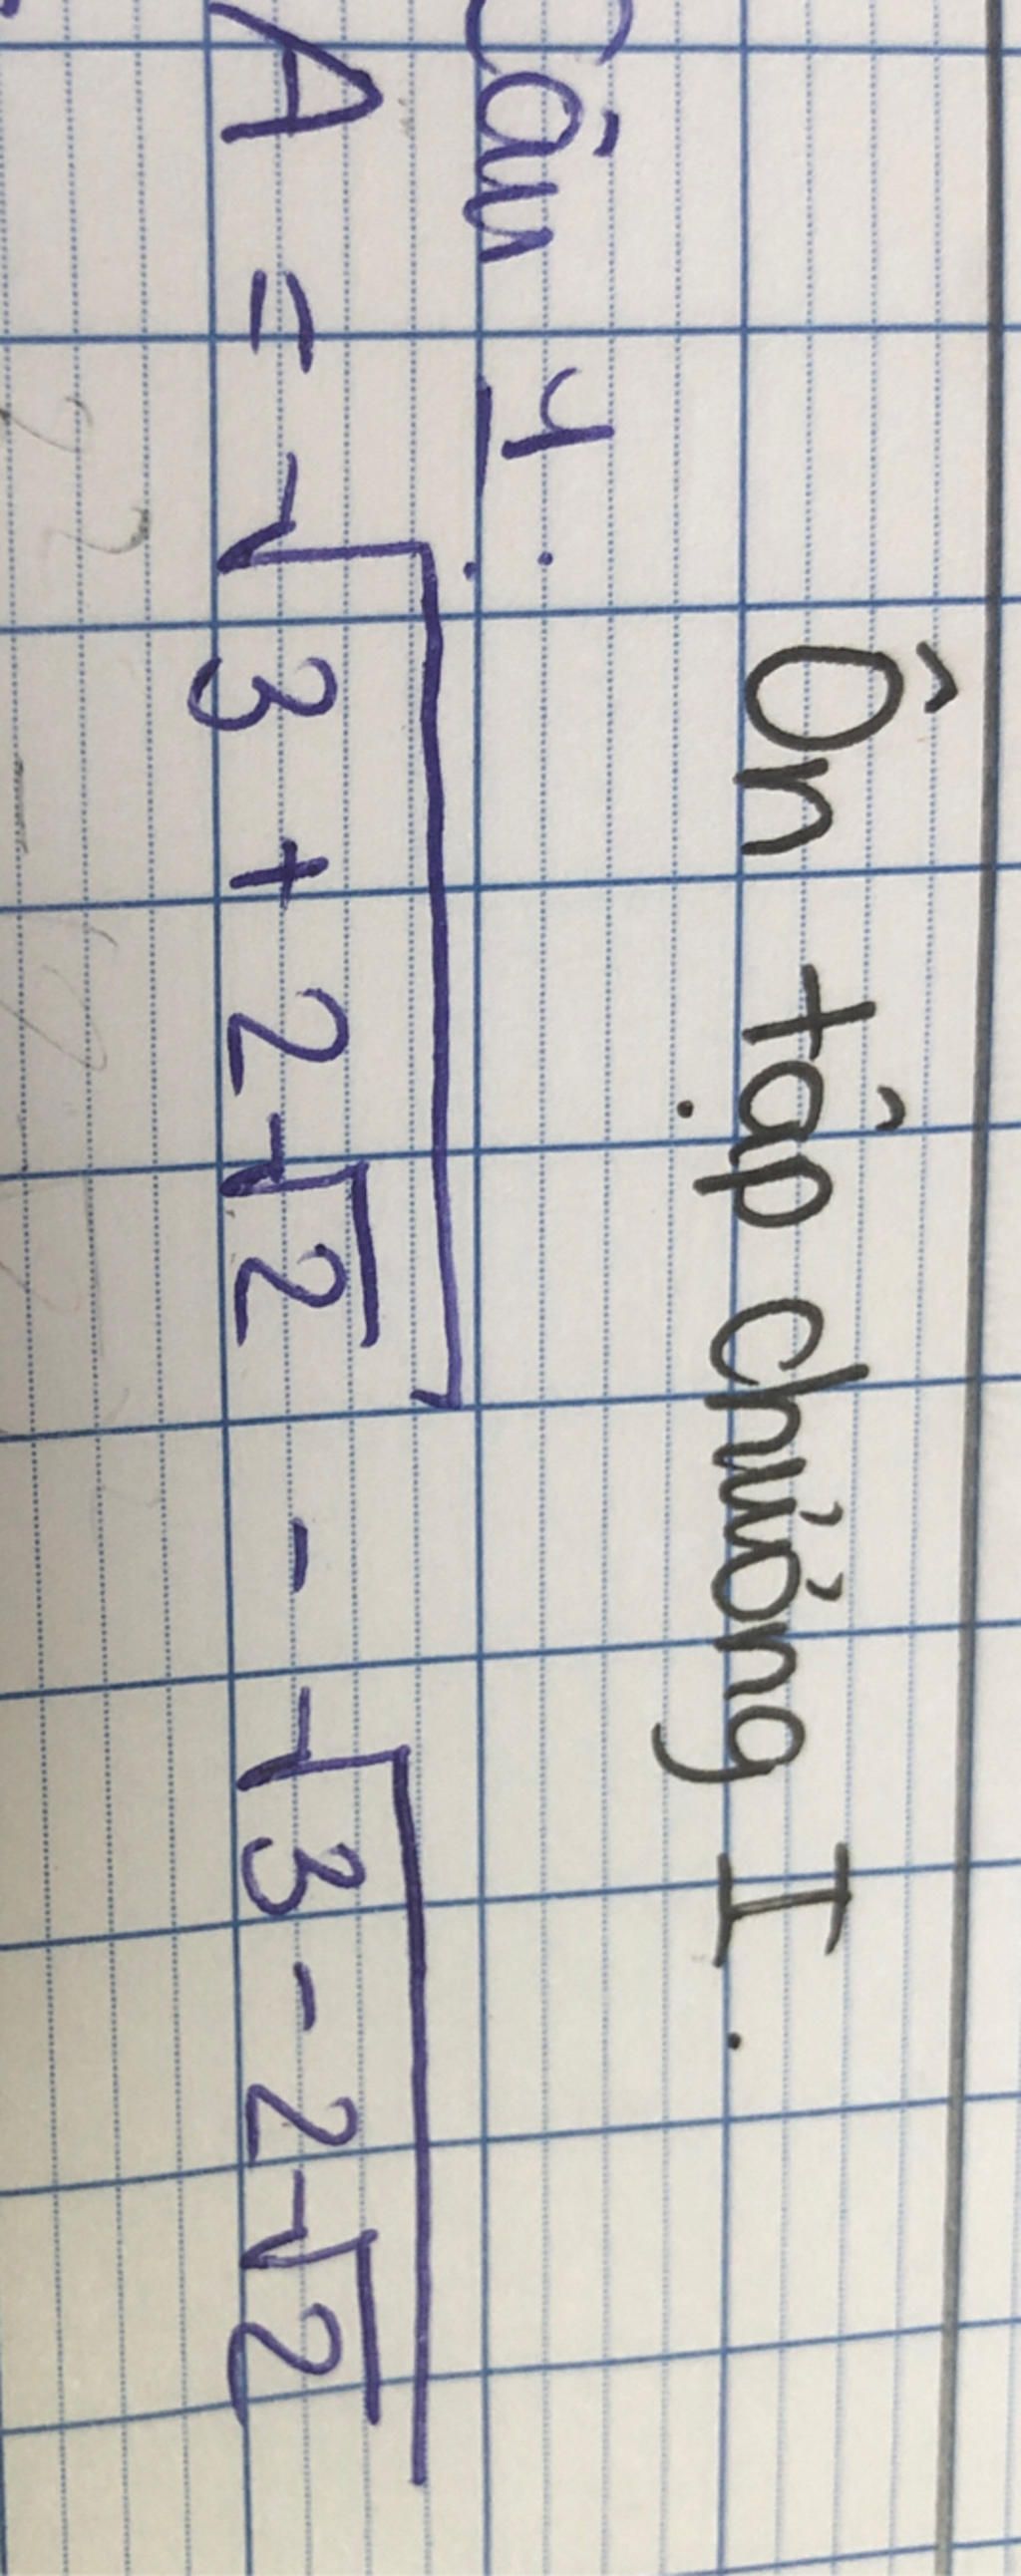 Ôn tập chương I.
Câu 4:
A = √(3 + 2√2) - √(3 - 2√2)